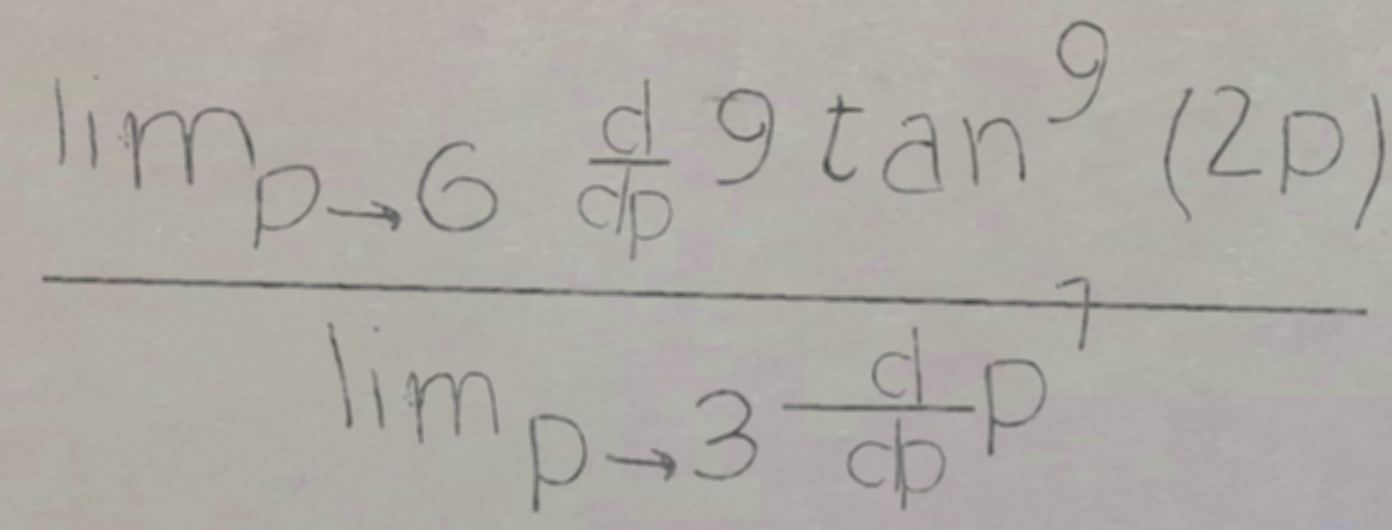 lim p→6 d/dp 9 tan^9 (2p)
lim p→3 d/dp p^7